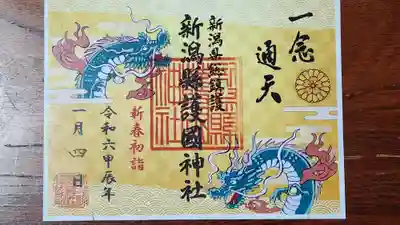 一念
通天
新潟県総鎮護
新潟縣護國神社
新春初詣
令和六甲辰年
一月四日